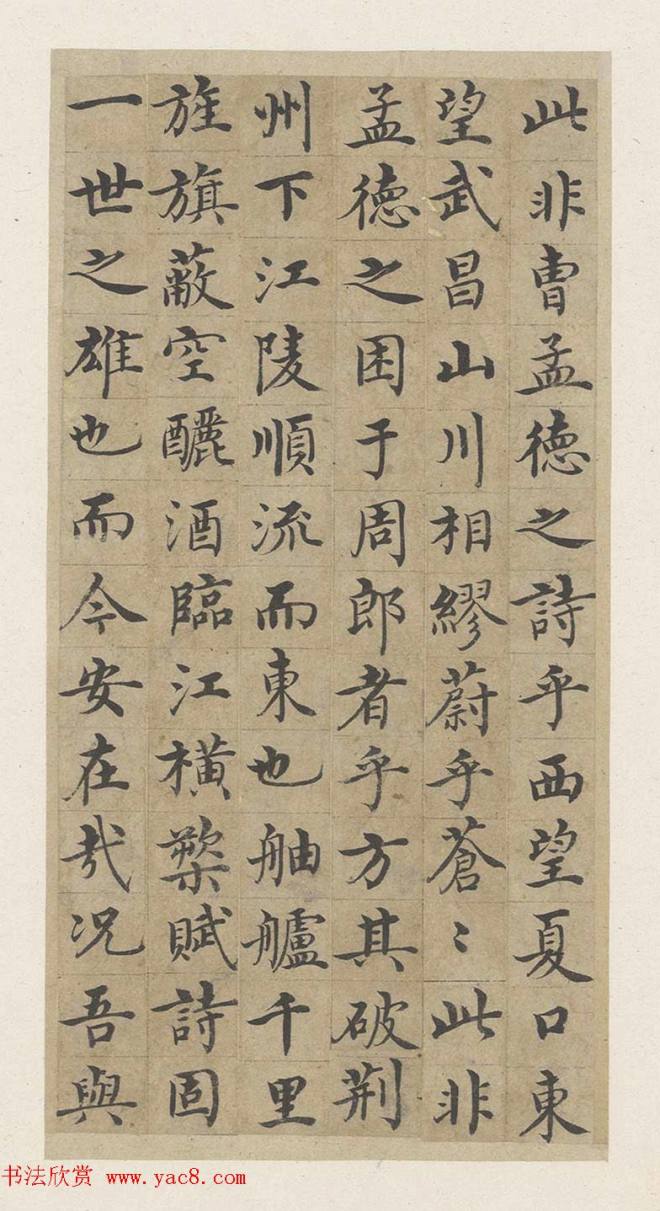 此非曹孟德之詩乎西望夏口東
望武昌山川相繆蔚乎蒼〻此非
孟德之困于周郎者乎方其破荆
州下江陵順流而東也舳艫千里
旌旗蔽空釃酒臨江橫槊賦詩固
一世之雄也而今安在哉况吾與
书法欣赏 www.yac8.com